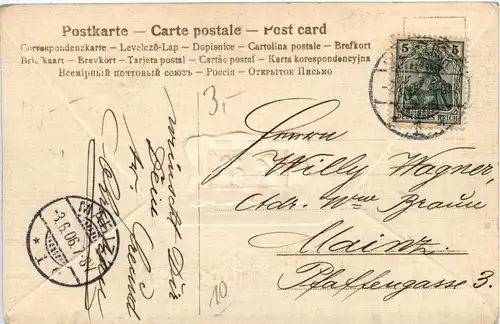 Postkarte – Carte postale – Post card
Correspondenzkarte – Levelező-Lap – Dopisnice – Cartolina postale – Brefkort
Briefkaart – Brevkort – Tarjeta postal – Cartão postal – Karta korespondencyjna
Всемірный почтовый союзъ – Россія – Открытое Письмо
5 5
DEUTSCHES REICH
3.-
Herrn
Willy Wagner,
Adr. Wwe Braun
Mainz.
Pfaffengasse 3.
wünscht Dir
Dein
Freund
MAINZ
3.6.06.
* 1
10